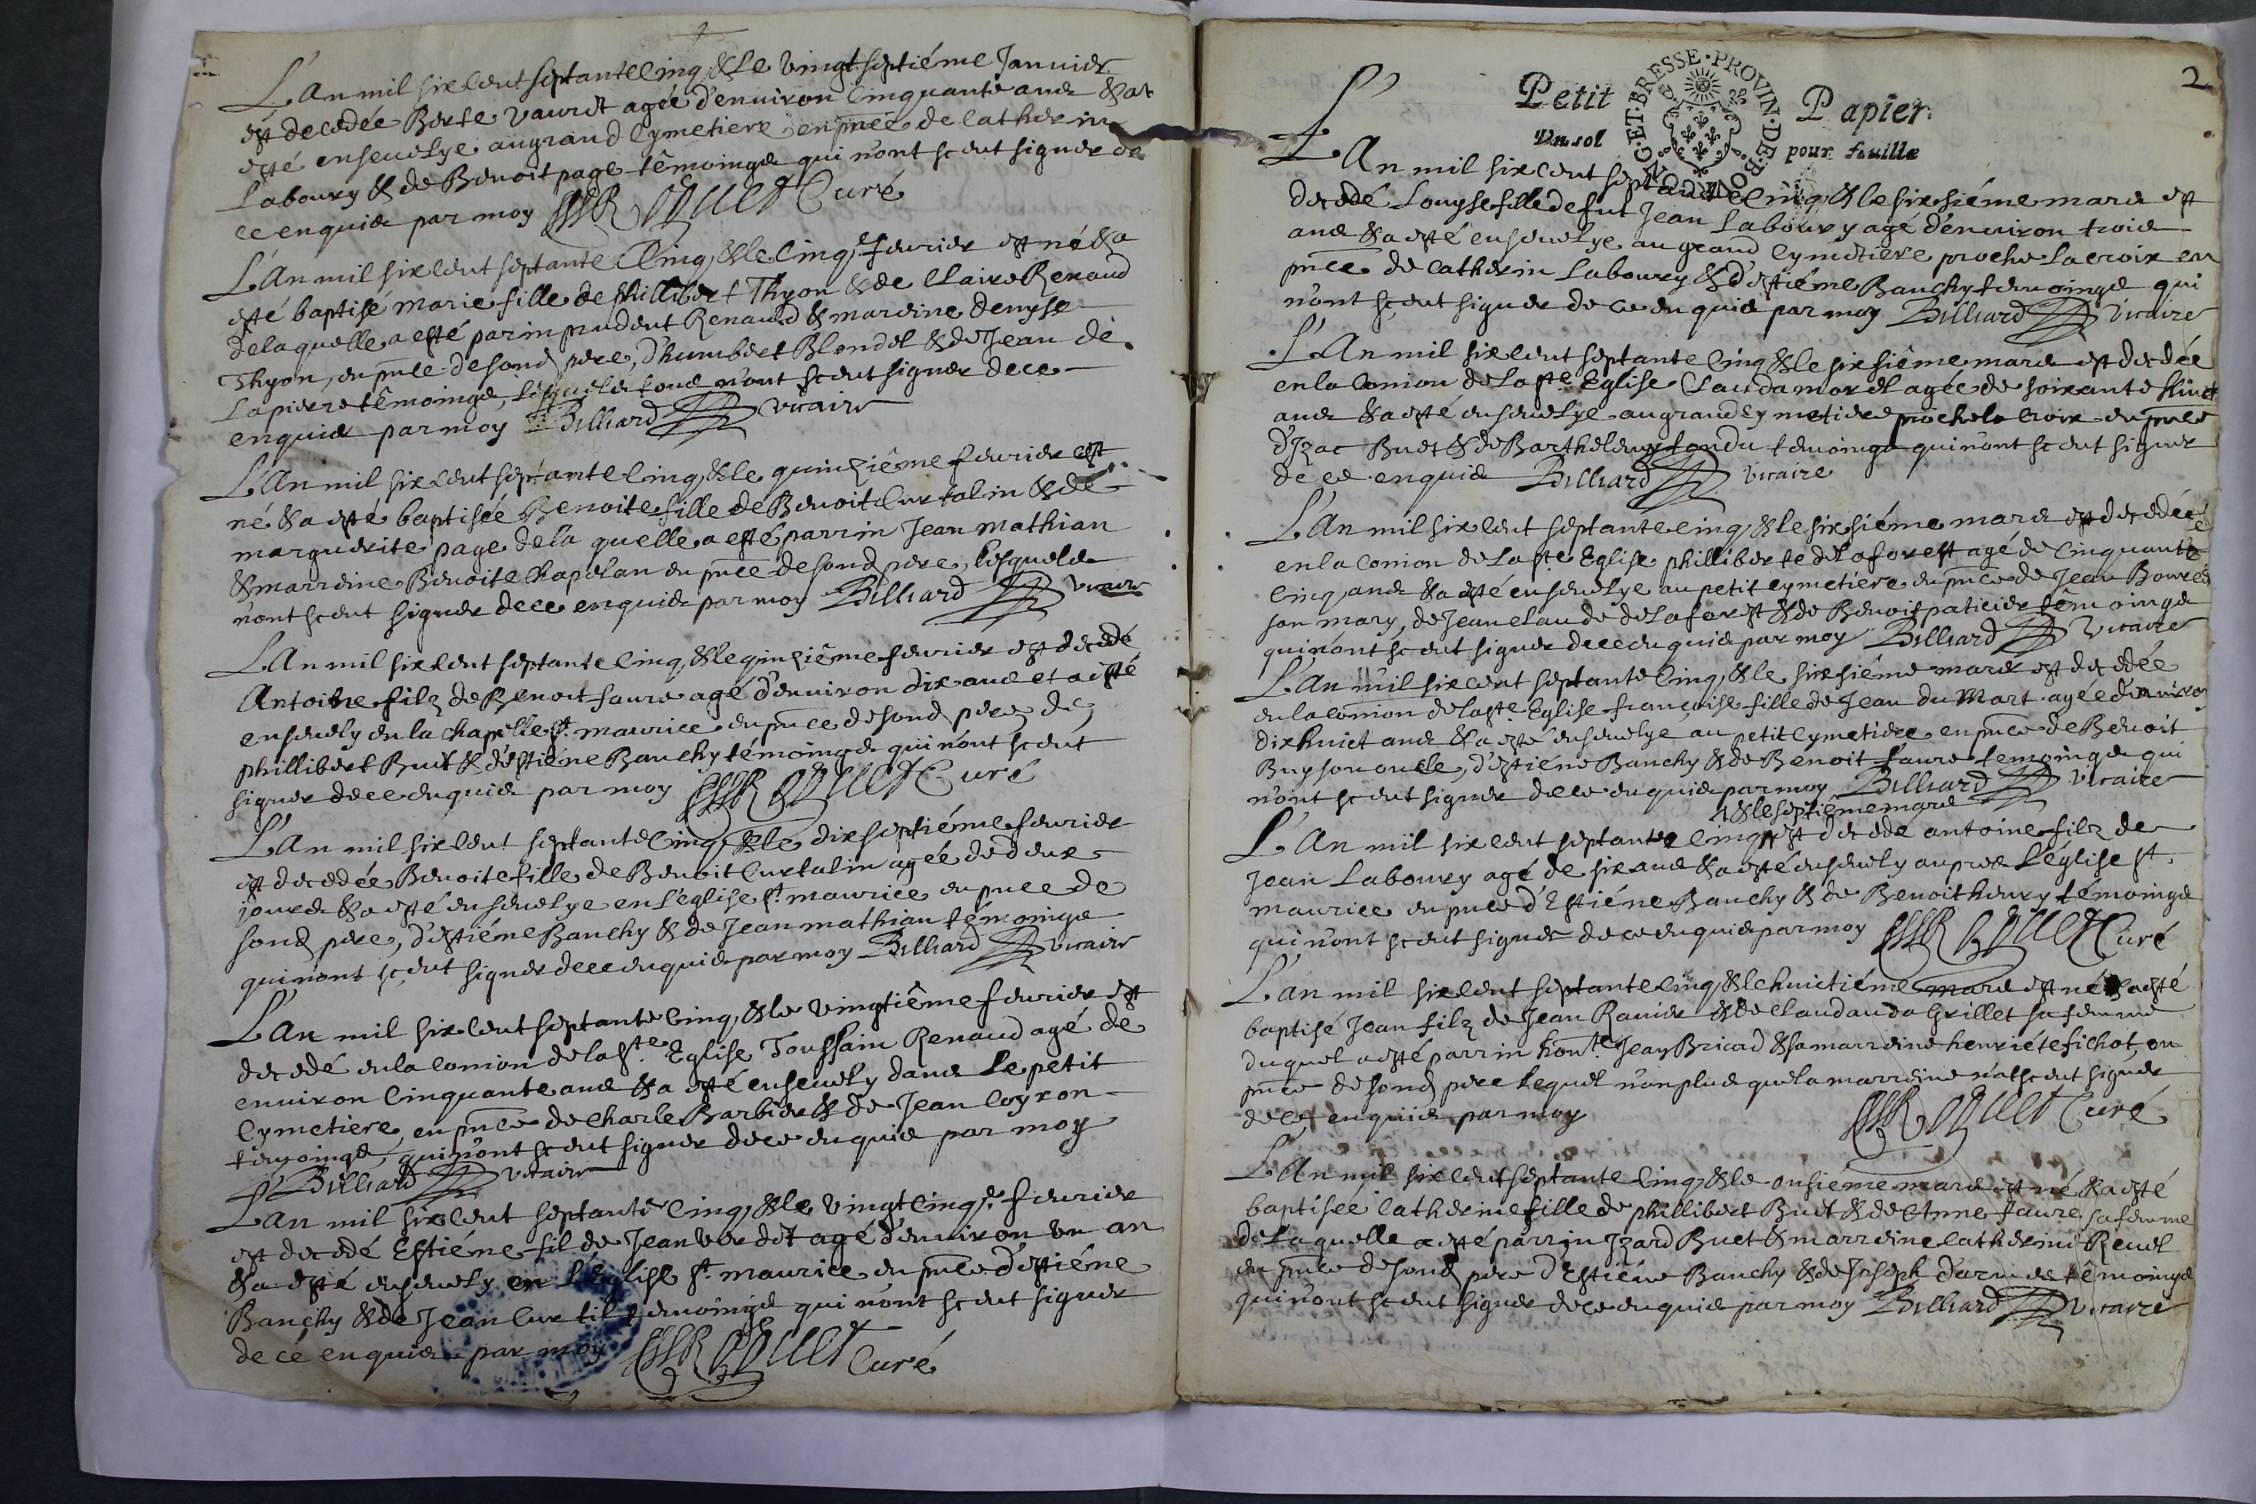 L'An mil six cent septante cinq, & le vingt septiéme Januier
est decedée Berte Vauret agée d'enuiron cinquante ans & at
esté enseuelye au grand Cymetiere en pnce de Catherin
Laboury & de Benoit page têmoings qui n'ont sceut signer de
ce enquis par moy Curé
L'An mil six cent septante Cinq, & le cinqe feurier est né & a
esté baptisé marie fille de phillibert Thyon & de Claire Renaud
de laquelle a esté parin prudent Renaud & mareine denyse
Thyon, en pnce de sond pere, d'humbert Blondel & de Jean de
Lapierre têmoings, lesquels tous n'ont sceut signer de ce
enquis par moy Billiard vicaire
L'An mil six cent septante cinq, & le quinziême feurier est
né & a esté baptisée Benoite fille de Benoit Curtalin & de
marguerite page de la quelle a esté parrin Jean mathian
& marreine Benoite Chapelan en pnce de sond pere, lesquels
n'ont sceut signer de ce enquis par moy Billiard vicaire
L'An mil six cent septante cinq, & le qinziême feurier est decedé
Antoine filz de Benoit faure agé d'enuiron dix ans et a esté
enseuely en la chapelle st. maurice en pnce de sond pere, de
phillibert Buit & d'Estiéne Banchy témoings qui n'ont sceut
signer de ce enquis par moy Curé
L'An mil six cent septante cinq, & le dix septiéme feurier
est decedée Benoite fille de Benoit Curtalin agée de deux
jours & a esté enseuelye en l'église st. maurice en pnce de
sond pere, d'estiéme Banchy & de Jean mathian témoings
qui n'ont sceut signer de ce enquis par moy Billiard vicaire
L'An mil six cent septante cinq, & le vingtiême feurier est
decedé en la comion de la ste. Eglise Toussain Renaud agé de
enuiron cinquante ans & a esté enseuely dans le petit
Cymetiere, en pnce de Charle Barbier & de Jean Coyron
temoings, qui n'ont sceut signer de ce enquis par moy
Billiard vicaire
L'An mil six cent septante cinq, & le vingt cinqe. feurier
est decedé Estiéne fil de Jean verdet agé d'enuiron vn an
& a esté enseuely en l'église st. maurice en pnce d'estiéne
Banchy & de Jean Curtil temoings qui n'ont sceut signer
de cé enquis par moy Curé
2
Petit Papier
Vn sol pour feuille
BOVRG·ET·BRESSE·PROVIN·DE
L'An mil six cent septante cinq, & le sixsiéme mars est
decedé Louyse fille de fut Jean Laboury agé d'enuiron trois
ans & a esté enseuelye au grand Cymetiere proche la croix en
pnce de Catherin Laboury & d'estiéme Banchy temoings qui
n'ont sceut signer de ce enquis par moy Billiard Vicaire
L'An mil six cent septante cinq & le sixsiême mars est decedée
en la Comion de la ste. Eglise Clauda morel agée de soixante huict
ans & a esté enseuelye au grand Cymetiere proche la croix en pnce
d'Izac Buet & de Barthelemy tondu temoings qui n'ont sceut signer
de ce enquis Billiard vicaire
L'An mil six cent septante cinq, & le sixsiéme mars est decedée
en la Comion de la ste Eglise philliberte de laforest agé de cinquante
cinq ans & a esté enseuelye au petit cymetiere en pnce de Jean
son mary, de Jean Claude de laforest & de Benoit paticier têmoings
qui n'ont sceut signer de ce enquis par moy Billiard Vicaire
L'An mil six cent septante cinq, & le sixsiême mars est decedée
en la comion de la ste. Eglise françoise fille de Jean du Mart agée d'enuiron
dixhuict ans & a esté enseuelye au petit Cymetiere en pnce de Benoit
Buyson oncle, d'estiéne Banchy & de Benoit faure temoings qui
n'ont sceut signer de ce enquis par moy Billiard vicaire
& le septiéme mars
L'An mil six cent septante cinq est decedé antoine filz de
Jean Laboury agé de six ans & a esté enseuely aupres l'église st.
maurice en pnce d'Estiéne Banchy & de Benoit heury témoings
qui n'ont sceut signer de ce enquis par moy Curé
L'an mil six cent septante cinq, & le huictiéme mars est né & a esté
baptisé Jean filz de Jean Rauier & de Claudauda Grillet sa femme
duquel a esté parrin honte. Jean Bricod & sa marreine henriéte fichot, en
pnce de sond pere lequel n'on plus que la marreine n'at sceut signer
de ce enquis par moy Curé
L'An mil six cent septante cinq, & le onsiéme mars est né & a esté
baptisée Catherine fille de phillibert Buet & de Anne faure sa femme
de laquelle a esté parrin Izard Buet & marreine Catherine Reuel
en pnce de sond pere d'Estiéne Banchy & de Joseph têmoings
qui n'ont sceut signer de ce enquis par moy Billiard vicaire